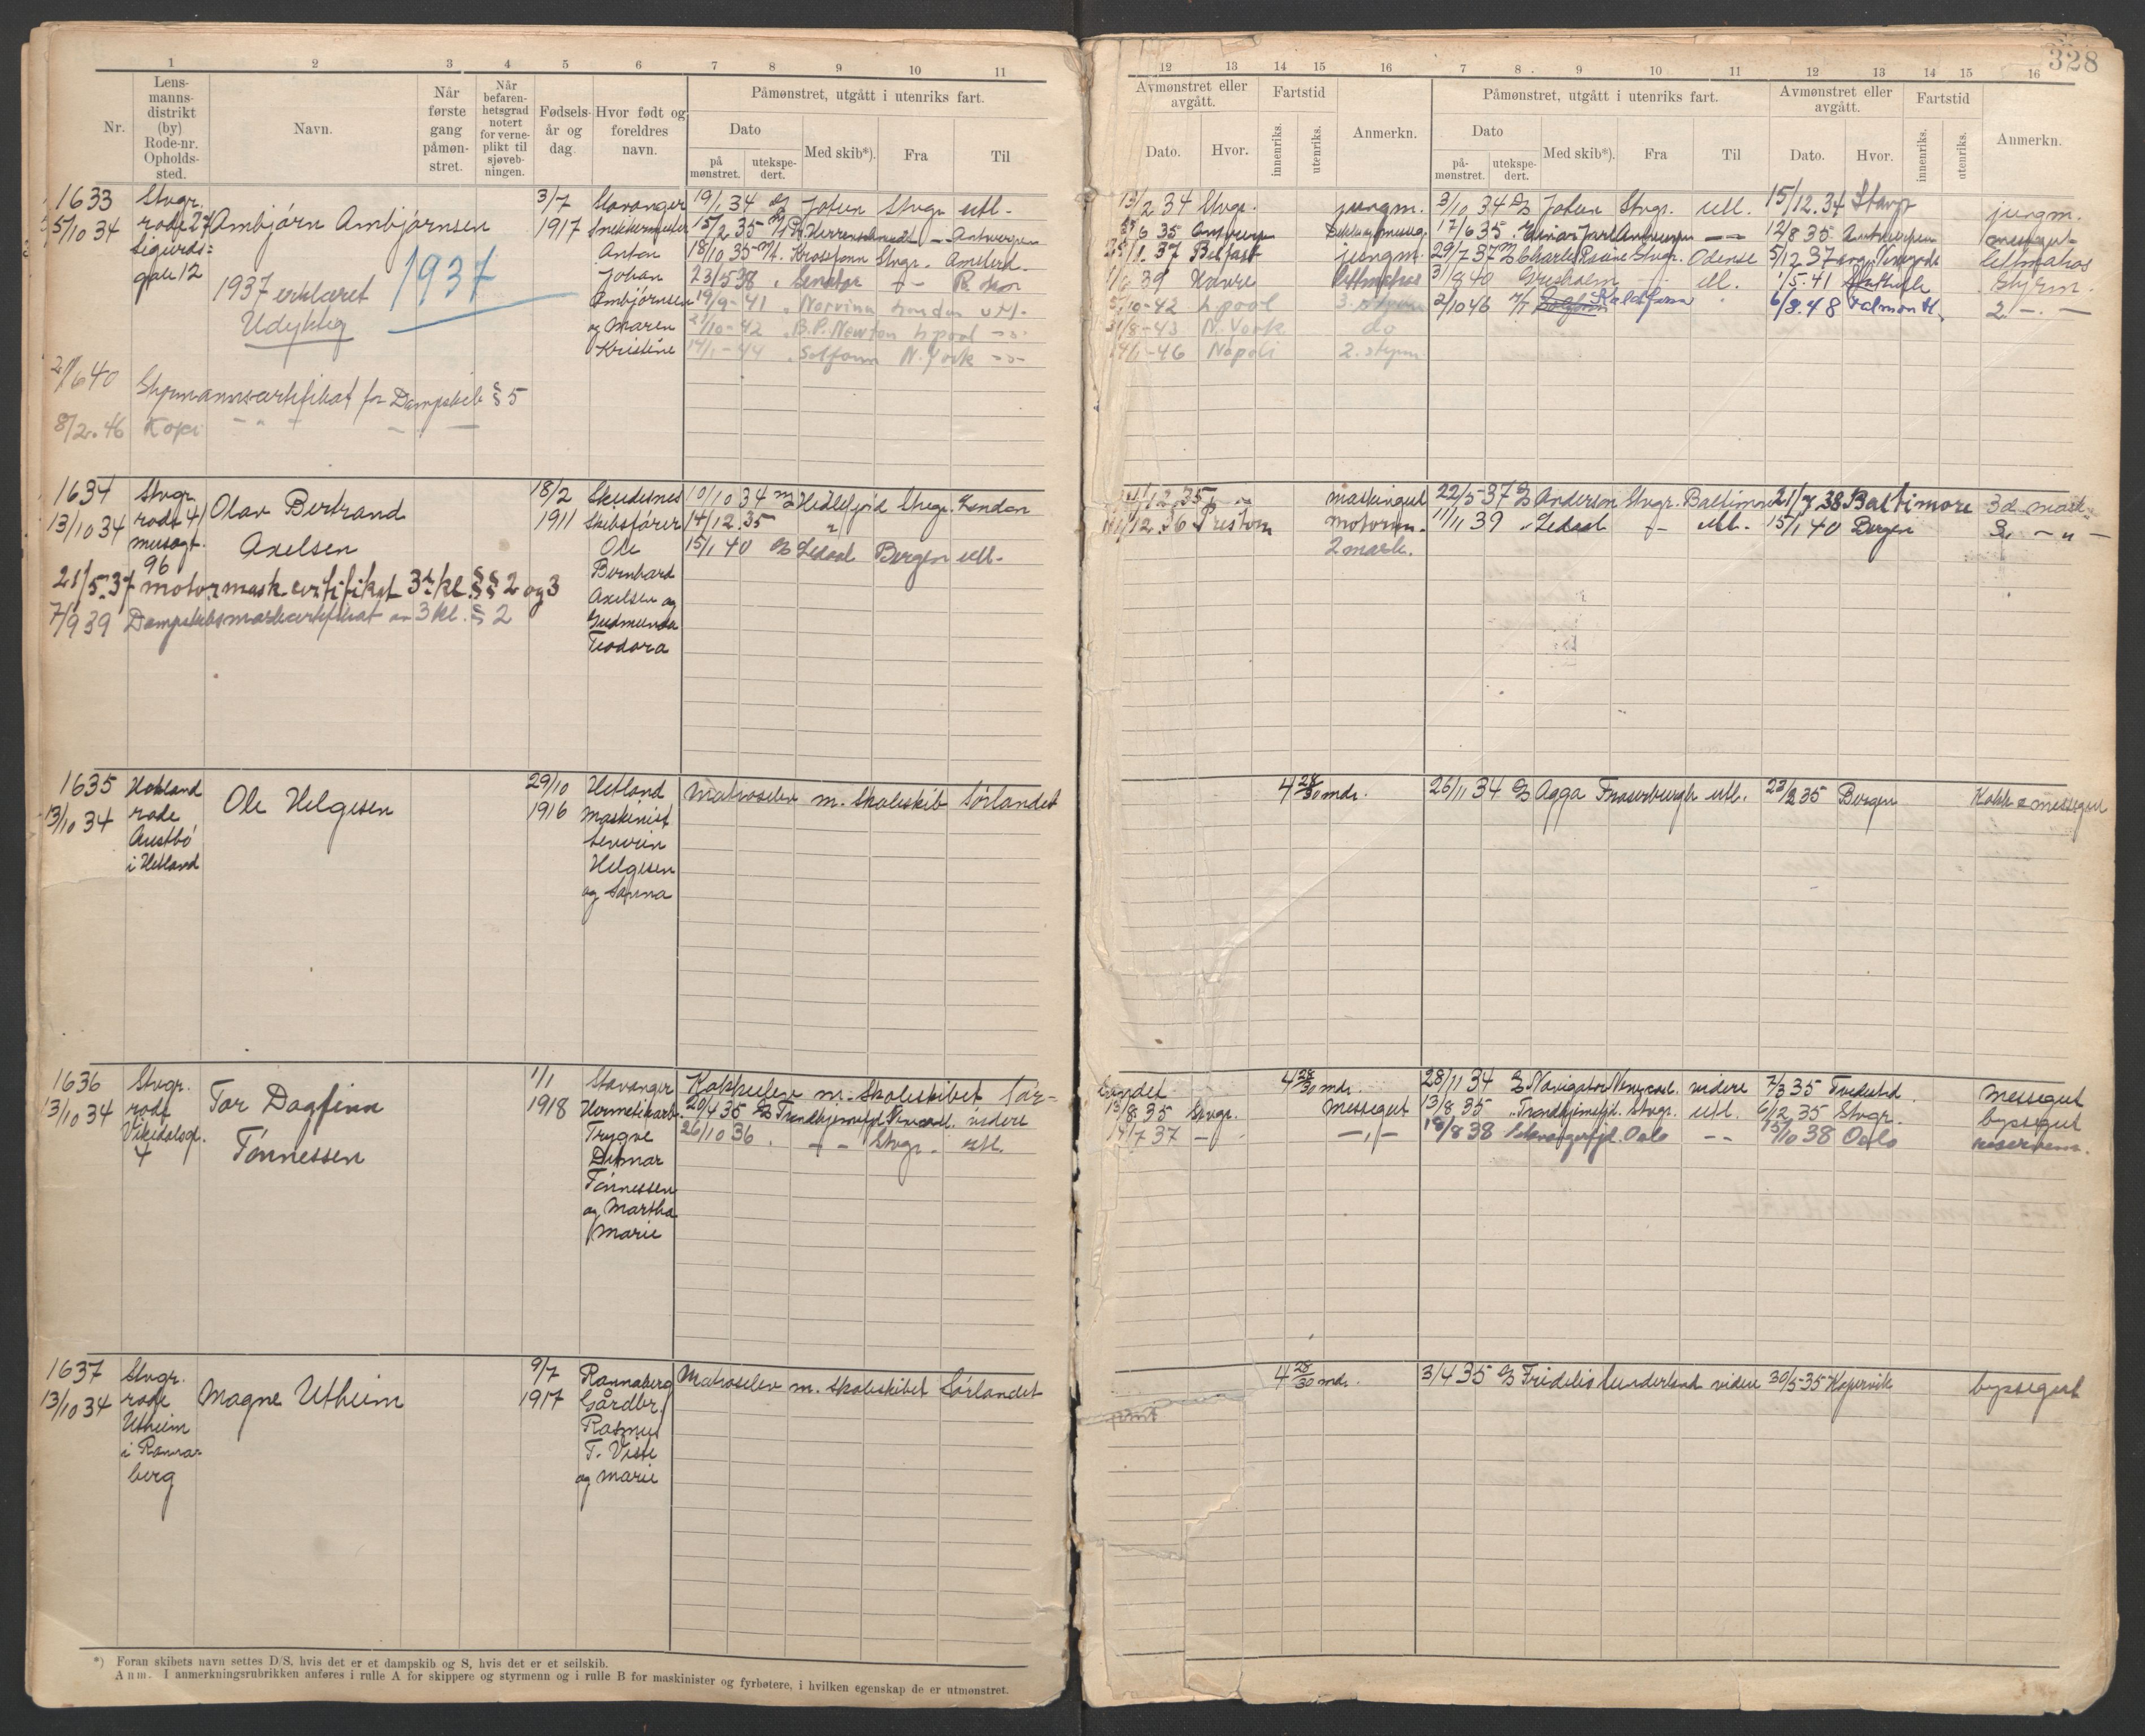 328
1 2 3 4 5 6 7 8 9 10 11
Nr.
Lens-
manns-
distrikt
(by)
Rode-nr.
Opholds-
sted.
Navn.
Når
første
gang
påmøn-
stret.
Når
befaren-
hetsgrad
notert
for verne-
plikt til
sjøveb-
ningen.
Fødsels-
år og
dag.
Hvor født og
foreldres
navn.
Påmønstret, utgått i utenriks fart.
Dato
på
mønstret.
utekspe-
dert.
Med skib*).
Fra
Til
12 13 14 15 16 7 8 9 10 11 12 13 14 15 16
Avmønstret eller
avgått.
Dato.
Hvor.
Fartstid
innenriks.
utenriks.
Anmerkn.
Påmønstret, utgått i utenriks fart.
Dato
på-
mønstret.
utekspe-
dert.
Med skib*).
Fra
Til
Avmønstret eller
avgått.
Dato.
Hvor.
Fartstid
innenriks.
utenriks.
Anmerkn.
1633
5/10 34
Stvgr.
rode 27
Sigurds-
gate 12
Ambjørn Ambjørnsen
1937 erklæret
Udyktig
1937
3/7
1917
Stavanger
Anton
Johan
Ambjørnsen
og Maren
Kristine
19/1 34 Jotun Stvgr. utl.
15/2 35 Antwerpen
18/10 35 Krossfonn Stvgr. Amsterd.
23/5 38 Senator
19/9-41 Norvinn London utl.
/10-42 B.P. Newton L.pool
14/1-44 Solfonn N.York
13/2 34 Stvgr. jungm.
6 35 Antwerpen
25/1 37 Belfast jungm.
39 Havre
10-42 L.pool
31/8-43 N.York do
14/1-46 Napoli 2. styrm
3/10 34 Jotun Stvgr. utl. 15/12.34 Stavgr jungm.
17/6 35 Einar Jarl Antwerpen 12/8 35 Antwerpen
29/7 37 Charles Racine Stvgr. Odense 5/12 37 lettmatros
1/5.41 Styrm.
2/10 46 Kaldfonn 6/8.48 Falmouth 2. — —
2/6 40 Styrmannscertifikat for Dampskib § 5
8/2.46 Kopi
1634
13/10 34
Stvgr.
rode 41
musegt.
96
Olav Bertrand
Axelsen
21/5.37 motormask certifikat 3die kl. §§ 2 og 3
7/9 39 Dampskibsmaskcertifikat av 3 kl. § 2
18/2
1911
Skudesnes
Skibsfører
Ole
Bernhard
Axelsen og
Gudmunda
Teodora
10/10 34 Hidlefjord Stvgr. London
14/12.35
15/1 40 Bergen utl.
12.35 maskingut
12.36 Preston motorm.
2 mask.
22/5-37 Anderson Stvgr. Baltimore 21/7 38 Baltimore 3d mask.
11/11 39 utl. 15/1 40 Bergen 3. — " —
1635
13/10 34
Hetland
rode
Austbø
i Hetland
Ole Helgesen
29/10
1916
Hetland
Maskinist
Severin
Helgesen
og Sanna
Matroselev m. Skoleskib Sørlandet
4 28/30 mdr.
26/11 34 Agga Fraserburgh utl. 23/2 35 Bergen Kokk & messegut
1636
13/10 34
Stvgr.
rode
Vikedalsgt.
4
Tor Dagfinn
Tønnessen
1/1
1918
Stavanger
Hermetikarb.
Trygve
Ditmar
Tønnessen
og Martha
Marie
Kokkelev m. Skoleskibet Sør-
20/4 35 Trondhjemsfjd Newcastl. videre
26/10 36 Stvgr. utl.
landet
13/8 35 Stvgr.
14/7 37
4 28/30 mdr.
Messegut
28/11 34 Navigator Newcastl. videre 7/3 35 Tvedestrd. Messegut
13/8 35 Trondhjemsfjd. Stvgr. utl. 6/12 35 Stvgr. byssegut
18/8 38 Stavangerfjd. Oslo — — 15/10 38 Oslo reservem.
1637
13/10 34
Stvgr.
rode
Utheim
i Randa-
berg
Magne Utheim
9/7
1917
Randaberg
Gårdbr.
Rasmus
T. Viste
og Marie
Matroselev m. Skoleskibet Sørlandet
4 28/30 mdr.
3/4 35 Fidelio Sunderland videre 30/5-35 Kopervik byssegut
*) Foran skibets navn settes D/S, hvis det er et dampskib og S, hvis det er et seilskib.
Anm. I anmerkningsrubrikken anføres i rulle A for skippere og styrmenn og i rulle B for maskinister og fyrbøtere, i hvilken egenskap de er utmønstret.